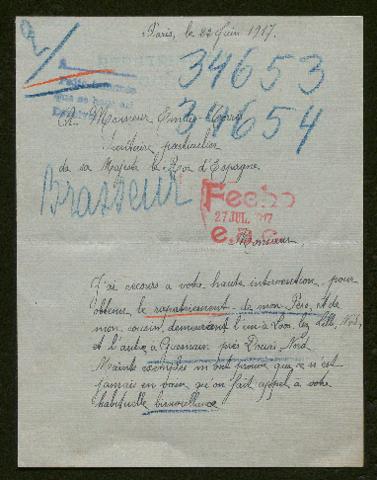 Paris, le 22 Juin 1917.
34653
34654
A Monsieur
Secrétaire particulier
de sa Majesté le Roi d'Espagne.
Brasseur
Fecho
27 JUL.
Monsieur
J'ai recours à votre haute intervention, pour
obtenir le rapatriement de mon Père, et de
mon cousin, demeurant l'un à Loos, lez Lille, Nord,
et l'autre à près Nord
Maints exemples m'ont prouvé que ce n'est
jamais en vain qu'on fait appel à votre
habituelle bienveillance